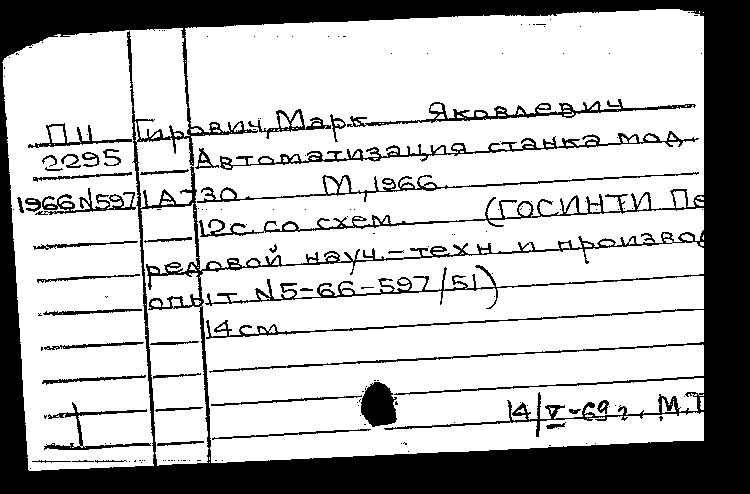 П11 Гирович, Марк Яковлевич
2295 Автоматизация станка мод.
1966 N597 1А730. М., 1966
12 с. со схем. (ГОСИНТИ Пе
редовой науч.-техн. и производ
опыт N5-66-597/51)
14 см.
14/V-69 г. М.Т